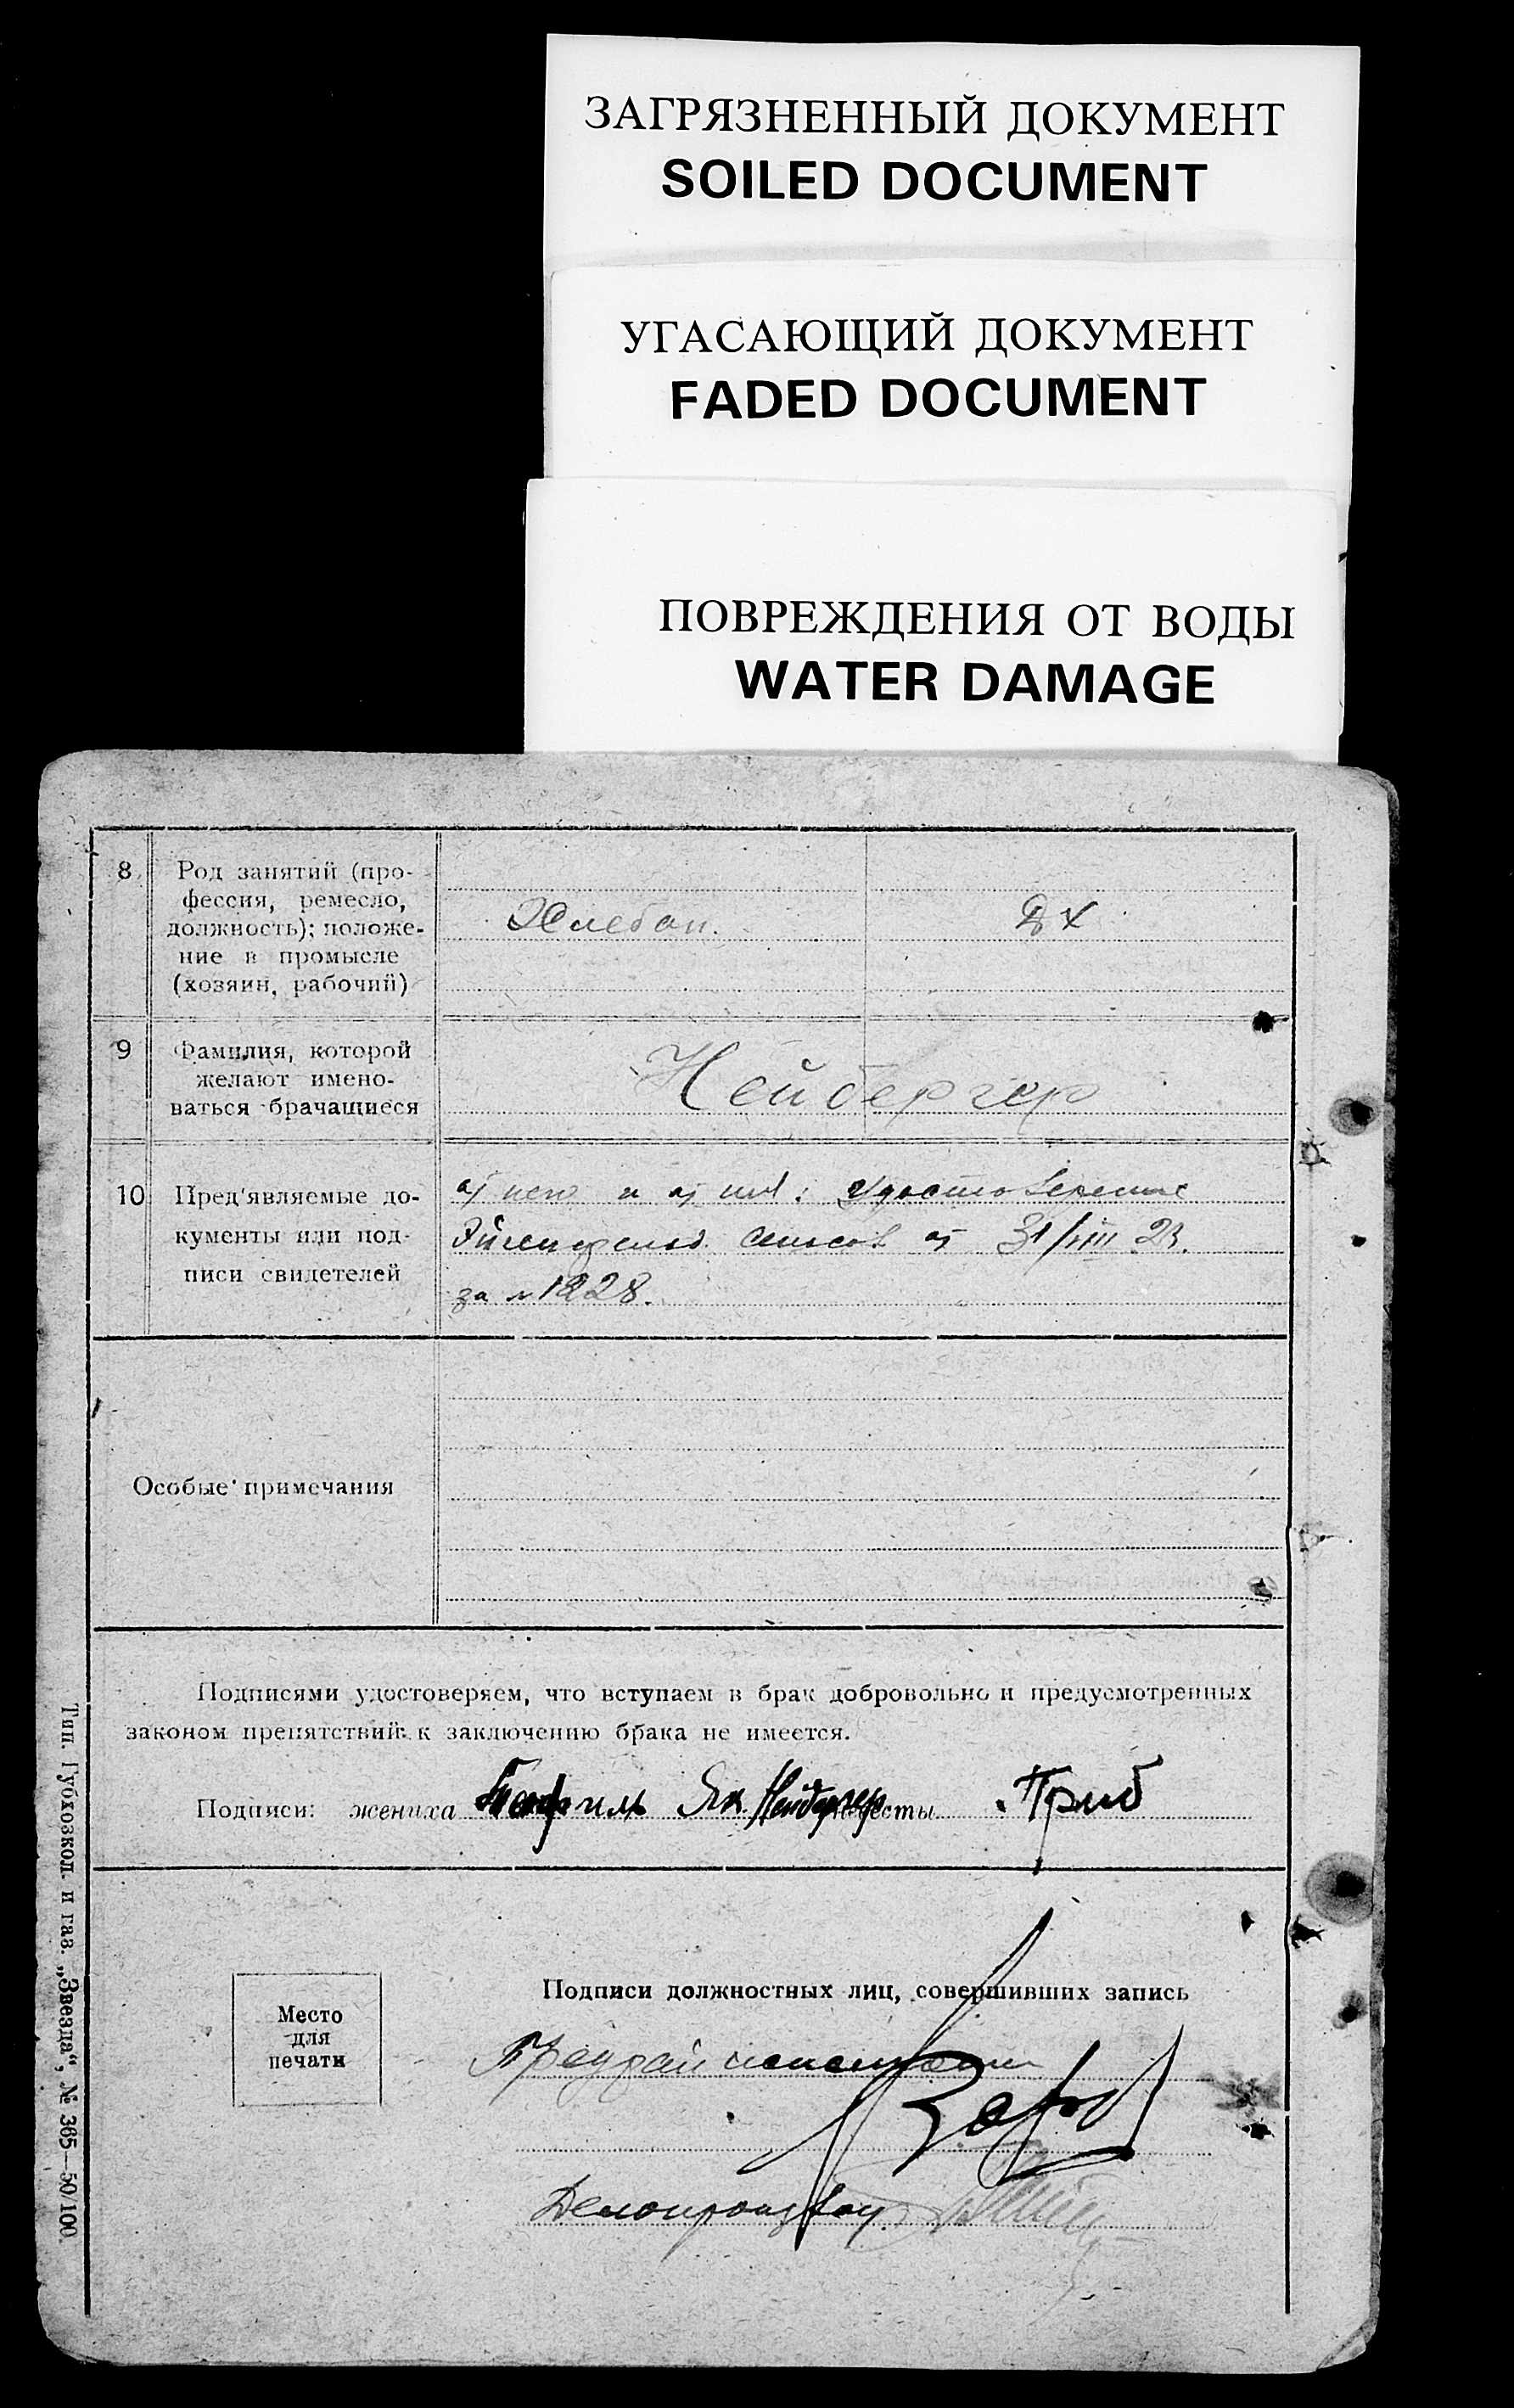 ЗАГРЯЗНЕННЫЙ ДОКУМЕНТ
SOILED DOCUMENT
УГАСАЮЩИЙ ДОКУМЕНТ
FADED DOCUMENT
ПОВРЕЖДЕНИЯ ОТ ВОДЫ
WATER DAMAGE
8
Род занятий (про-
фессия, ремесло,
должность); положе-
ние в промысле
(хозяин, рабочий)
Хлебоп.
ДХ
9
Фамилия, которой
желают имено-
ваться брачащиеся
Нейбергер
10
Пред'являемые до-
кументы или под-
писи свидетелей
Удостоверение
31/VIII 23.
за № 1228.
Особые примечания
Подписями удостоверяем, что вступаем в брак добровольно и предусмотренных
законом препятствий к заключению брака не имеется.
Подписи: жениха Як Нейбергер невесты Приб
Место
для
печати
Подписи должностных лиц, совершивших запись
Предрайисполкома
Делопроизвод.
Тип. Губозкол. и газ. „Звезда“, № 365—50/100.